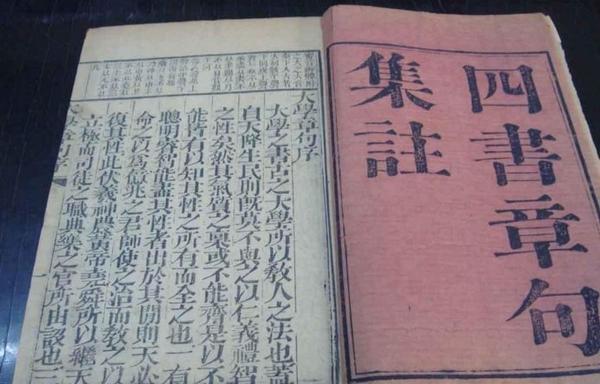 四書章句
集註
大學章句序
大學之書古之大學所以教人之法也蓋
自天降生民則既莫不與之以仁義禮智
之性矣然其氣質之稟或不能齊是以不
能皆有以知其性之所有而全之也一有
聰明睿智能盡其性者出於其間則天必
命之以為億兆之君師使之治而教之以
復其性此伏羲神農黃帝堯舜所以繼天
立極而司徒之職典樂之官所由設也三